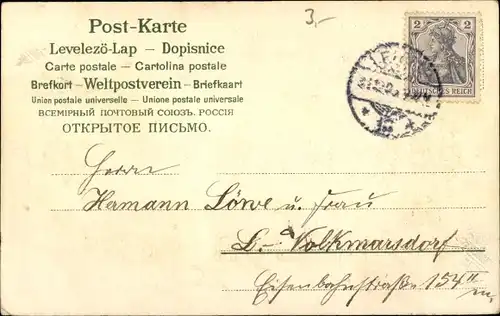 3,-
Post-Karte
Levelező-Lap — Dopisnice
Carte postale — Cartolina postale
Brefkort — Weltpostverein — Briefkaart
Union postale universelle — Unione postale universale
ВСЕМІРНЫЙ ПОЧТОВЫЙ СОЮЗЪ. РОССІЯ
ОТКРЫТОЕ ПИСЬМО.
2 2
DEUTSCHES REICH
Herrn
Hermann Löwe u. Frau
L.- Volkmarsdorf
Eisenbahnstraße 154 II